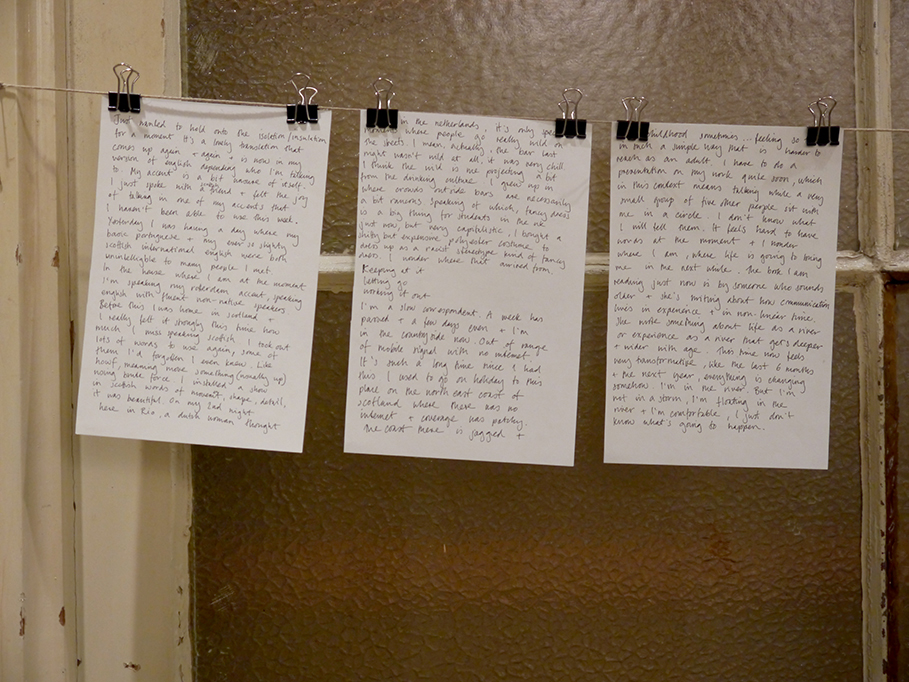 Just wanted to hold onto the isolation/insulation
for a moment it's a lovely translation that
comes up again + again + is now in my
version of english depending who I'm talking
to. My accent is a bit unsure of itself.
I just spoke with a friend + felt the joy
of talking in one of my accents that
I haven't been able to use this week.
Yesterday I was having a day where my
basic portuguese + my ever so slightly
scottish international english were both
unintelligible to many people I met.
In the house where I am at the moment
I'm speaking my rotterdam accent, speaking
english with fluent non-native speakers
Before this I was home in scotland +
I really felt it strongly this time how
much I miss speaking scottish. I took out
lots of words to use again, some of
them I'd forgotten I even knew. Like
howf, meaning move something (usually up)
using brute force. I installed a show
in scottish words of moment, shape, detail,
it was beautiful. On my last night
here in Rio, a dutch woman thought
in the netherlands, it's only
where people go really wild on
the streets. I mean, actually, the bar last
night wasn't wild at all, it was very chill.
I think the wild is me projecting a bit
from the drinking culture I grew up in
where crowds outside bars are necessarily
a bit raucous. Speaking of which, fancy dress
is a big thing for students in the UK
just now, but very capitalistic. I bought a
shitty but expensive polyester costume to
dress up as a racist stereotype kind of fancy
dress. I wonder where that arrived from.
Keeping at it
letting go
working it out
I'm a slow correspondent. A week has
passed + a few days even + I'm
in the countryside now. Out of range
of mobile signal with no internet.
It's such a long time since I had
this. I used to go on holiday to this
place on the north east coast of
scotland where there was no
internet + coverage was patchy.
The coast there is jagged +
childhood sometimes... feeling so
in such a simple way that is harder to
reach as an adult. I have to do a
presentation on my work quite soon, which
in this context means talking while a very
small group of five other people sit with
me in a circle. I don't know what
I will tell them. It feels hard to have
words at the moment + I wonder
where I am, where life is going to bring
me in the next while. The book I am
reading just now is by someone who sounds
older + she's writing about how communication
lives in experience + in non-linear time.
She wrote something about life as a river
or experience as a river that gets deeper
+ wider with age. This time now feels
very transformative, like the last 6 months
+ the next year, everything is changing
somehow. I'm in the river. But I'm
not in a storm, I'm floating in the
river + I'm comfortable, I just don't
know what's going to happen.